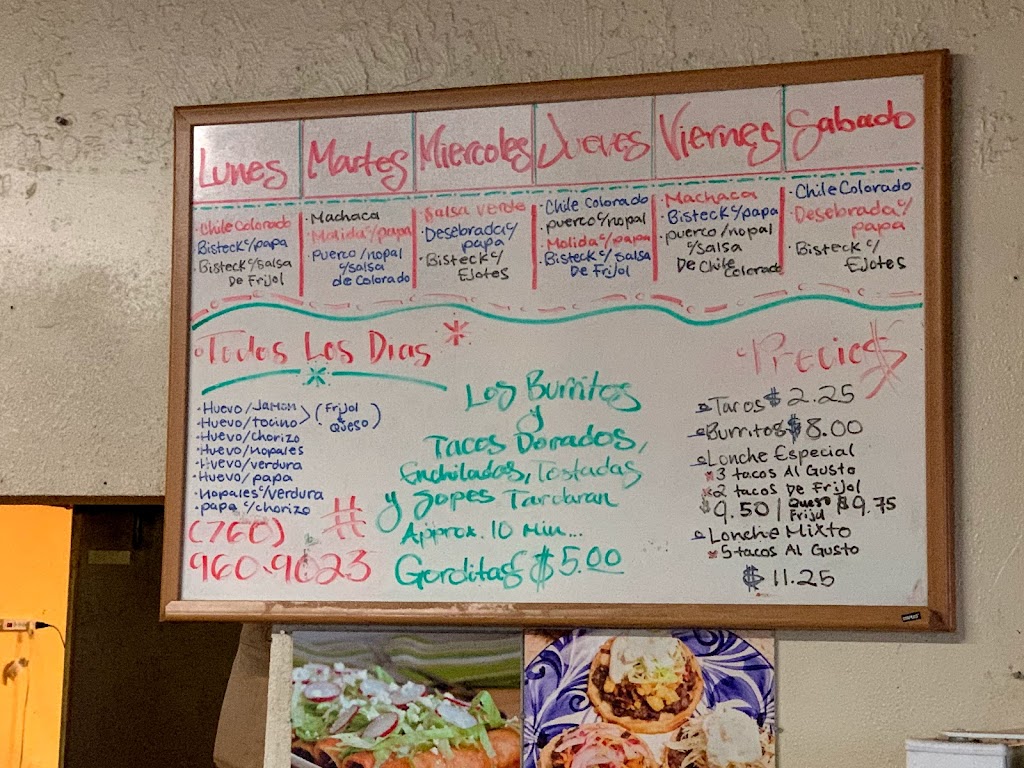 Lunes
Martes
Miercoles
Jueves
Viernes
Sabado
·Chile Colorado
Bisteck c/papa
·Bisteck c/salsa
De Frijol
·Machaca
·Molida c/papa
·puerco/nopal
c/salsa
de Colorado
·Salsa verde
·Desebrada c/
papa
·Bisteck c/
Ejotes
·Chile Colorado
·puerco c/nopal
·Molida c/papa
·Bisteck c/ salsa
De Frijol
·Machaca
·Bisteck c/papa
·puerco/nopal
c/salsa
De Chile
Colorado
·Chile Colorado
·Desebrada c/
papa
·Bisteck c/
Ejotes
·Todos Los Dias *
·Huevo/Jamon
·Huevo/tocino > (Frijol
Queso)
·Huevo/chorizo
·Huevo/nopales
·Huevo/verdura
·Huevo/papa
·nopales c/verdura
·papa c/chorizo
(760) #
960-9023
Los Burritos
y
Tacos Dorados,
Enchiladas, Tostadas
y Sopes Tardaran
Approx. 10 Min...
Gorditas $5.00
Precio$
Tacos $2.25
Burritos $8.00
Lonche Especial
*3 tacos Al Gusto
*2 tacos De Frijol
$9.50 | Queso Frijol $9.75
Lonche Mixto
*5 tacos Al Gusto
$11.25